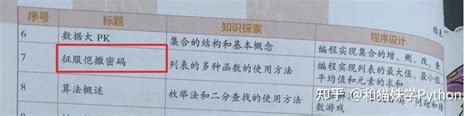 续表
序号 标题 知识探索 程序设计
6 数据大 PK 集合的结构和基本概念 编程实现集合的增、删、改、查
7 征服恺撒密码 列表的多种函数的使用方法 编程实现列表的最大值、最小值、
平均值和元素的求和
8 算法概述 枚举法和二分查找的使用方法
数游戏
知乎 @和猫妹学Python